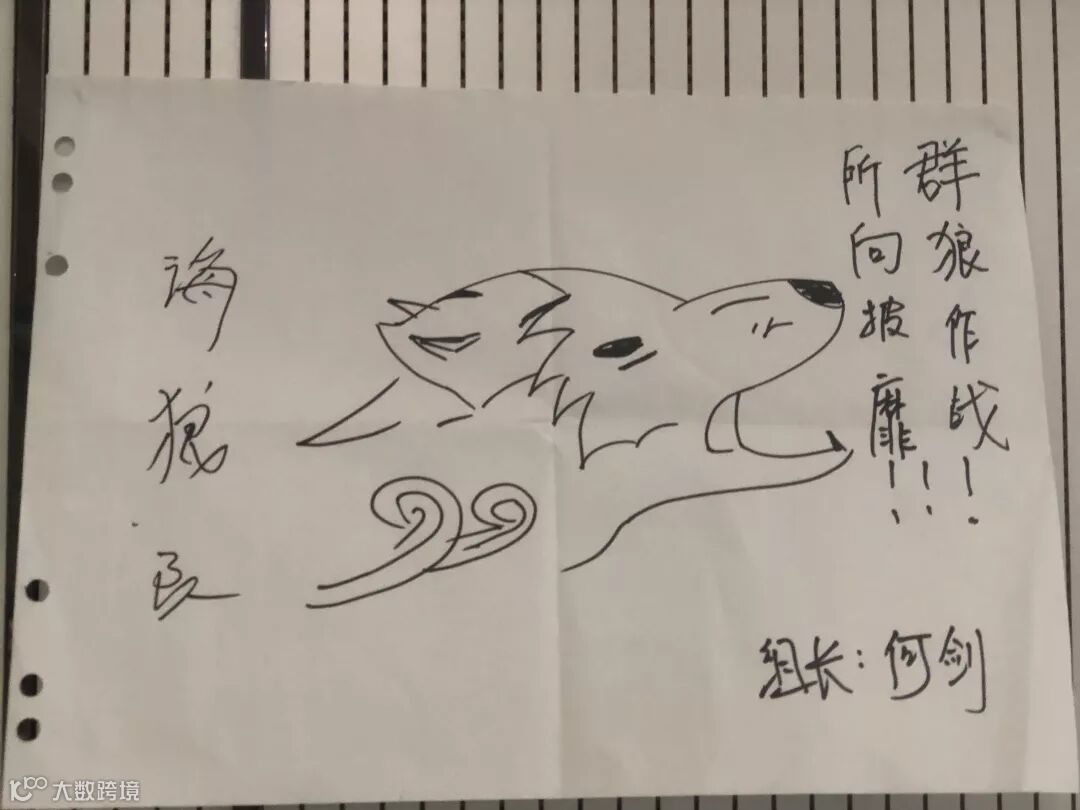 群狼作战!!!
所向披靡!!!
海狼队
组长：何剑
大数跨境